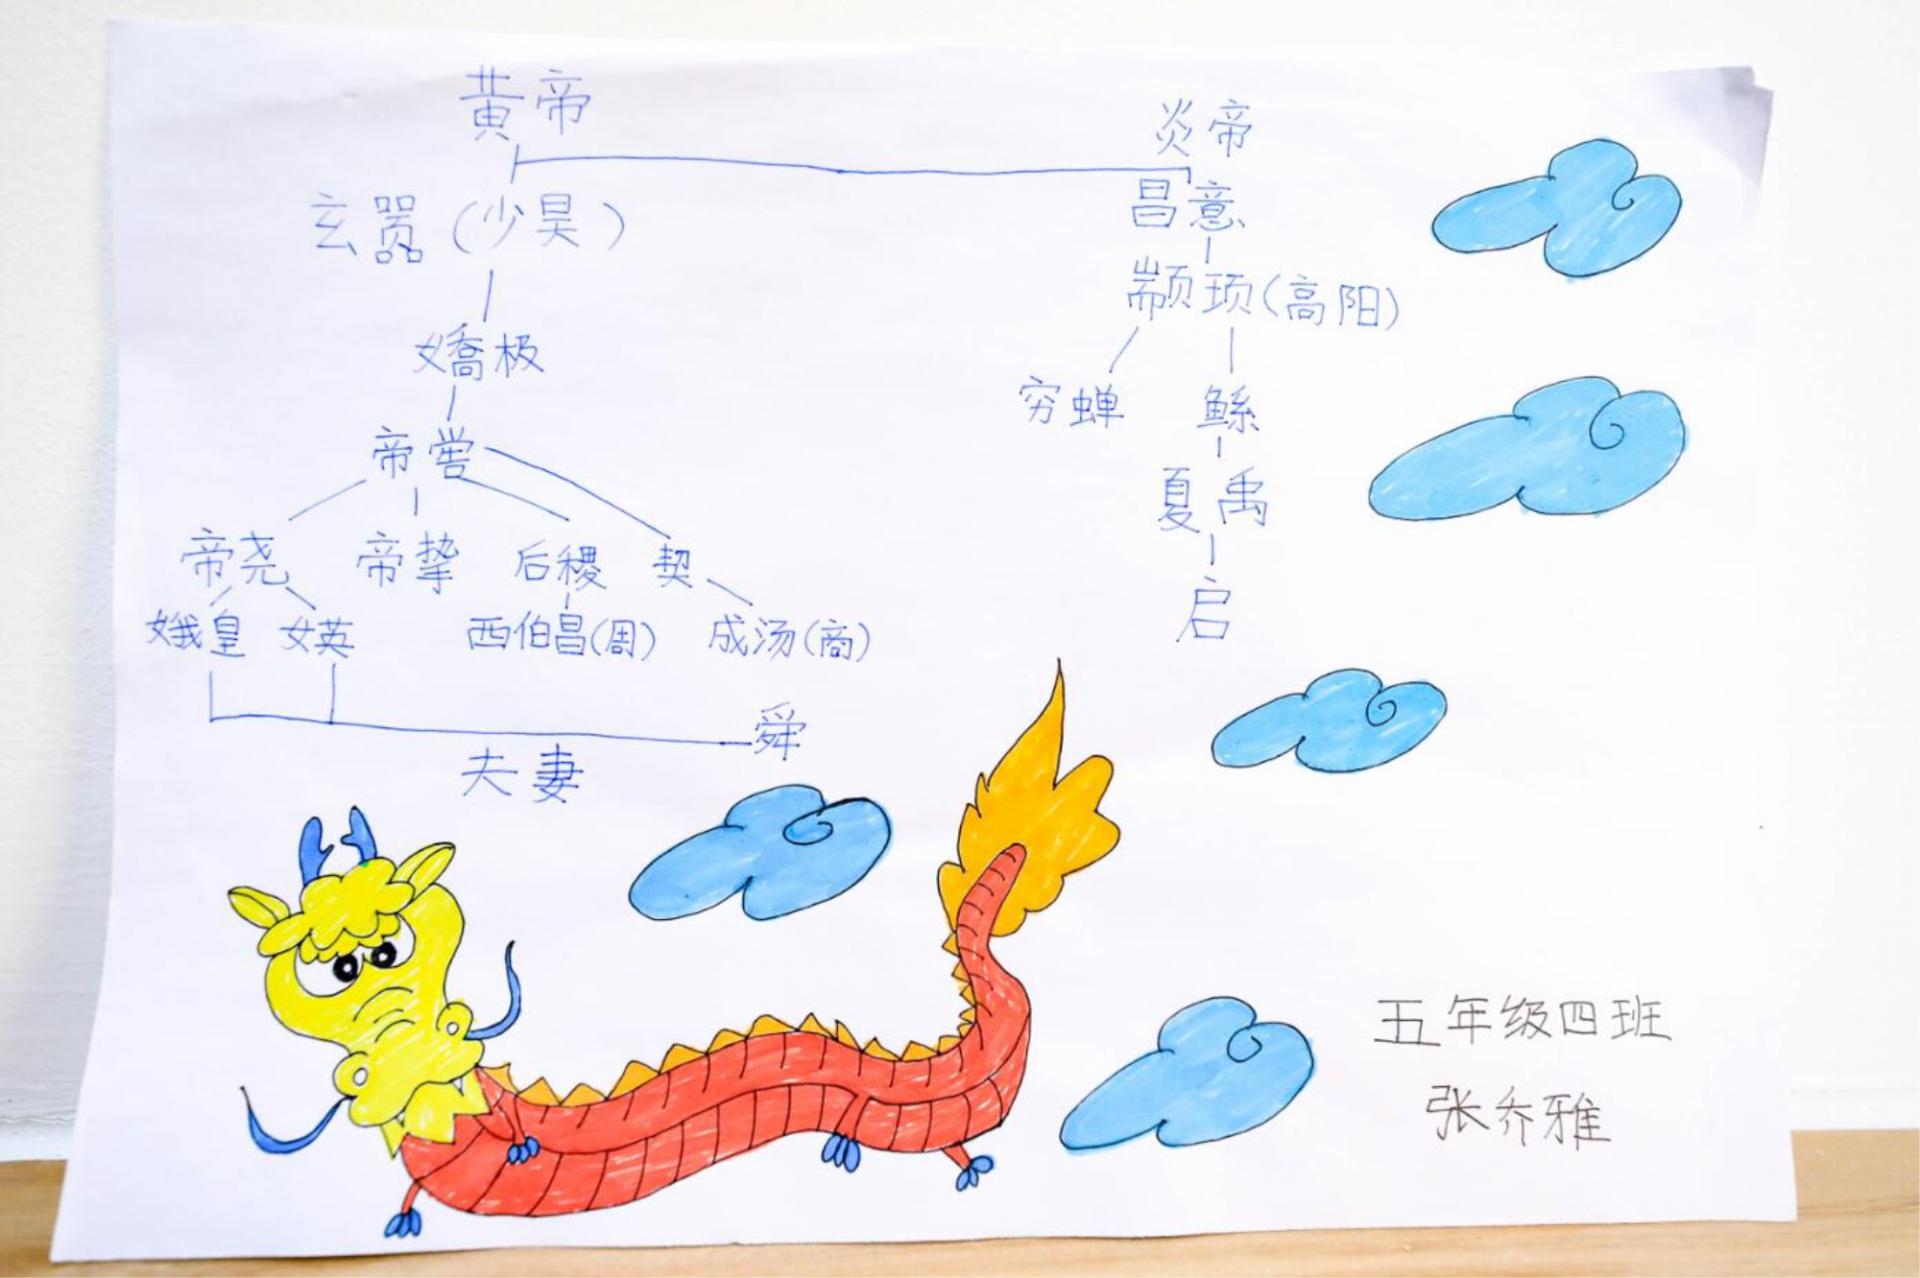 黄帝 炎帝
玄嚣(少昊) 昌意
颛顼(高阳)
嬌极 穷蝉 鲧
帝喾 夏禹
帝尧 帝挚 后稷 契 启
娥皇 女英 西伯昌(周) 成汤(商)
舜
夫妻
五年级四班
张乔雅